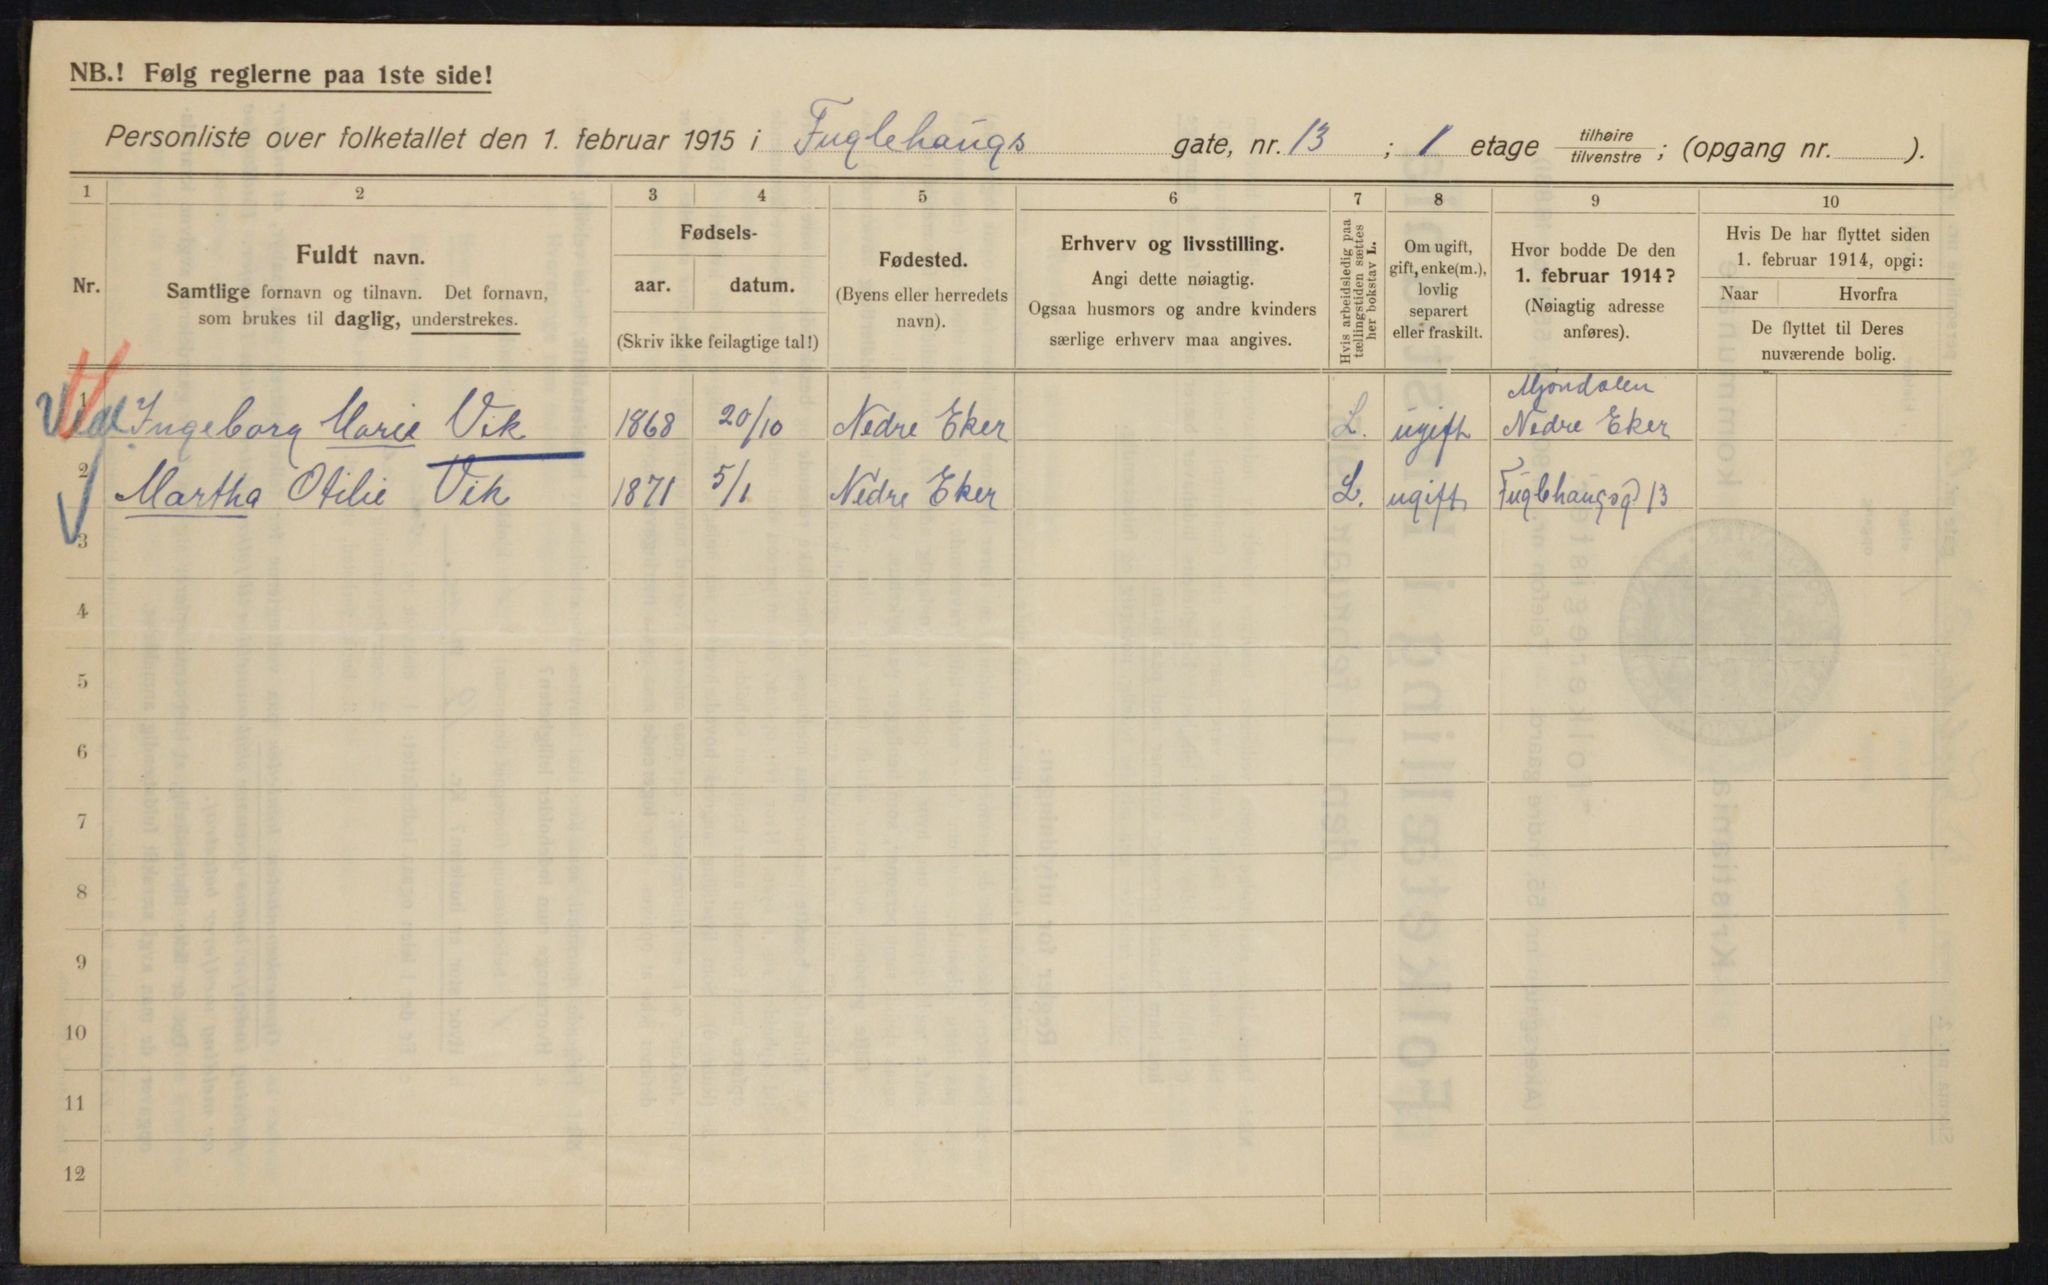 NB.! Følg reglerne paa 1ste side!
Personliste over folketallet den 1. februar 1915 i Fuglehaugs gate, nr. 13 ; 1 etage tilhøire / tilvenstre ; (opgang nr. ).
1 2 3 4 5 6 7 8 9 10
Nr.
Fuldt navn.
Samtlige fornavn og tilnavn. Det fornavn,
som brukes til daglig, understrekes.
Fødsels-
aar. datum.
(Skriv ikke feilagtige tal!)
Fødested.
(Byens eller herredets
navn).
Erhverv og livsstilling.
Angi dette nøiagtig.
Ogsaa husmors og andre kvinders
særlige erhverv maa angives.
Hvis arbeidsledig paa
tællingstiden sættes
her bokstav L.
Om ugift,
gift, enke(m.),
lovlig
separert
eller fraskilt.
Hvor bodde De den
1. februar 1914?
(Nøiagtig adresse
anføres).
Hvis De har flyttet siden
1. februar 1914, opgi:
Naar Hvorfra
De flyttet til Deres
nuværende bolig.
Mjøndalen
1 Ingeborg Marie Vik 1868 20/10 Nedre Eker L. ugift Nedre Eker
2 Martha Otilie Vik 1871 5/1 Nedre Eker L. ugift Fuglehaugsg 13
3
4
5
6
7
8
9
10
11
12